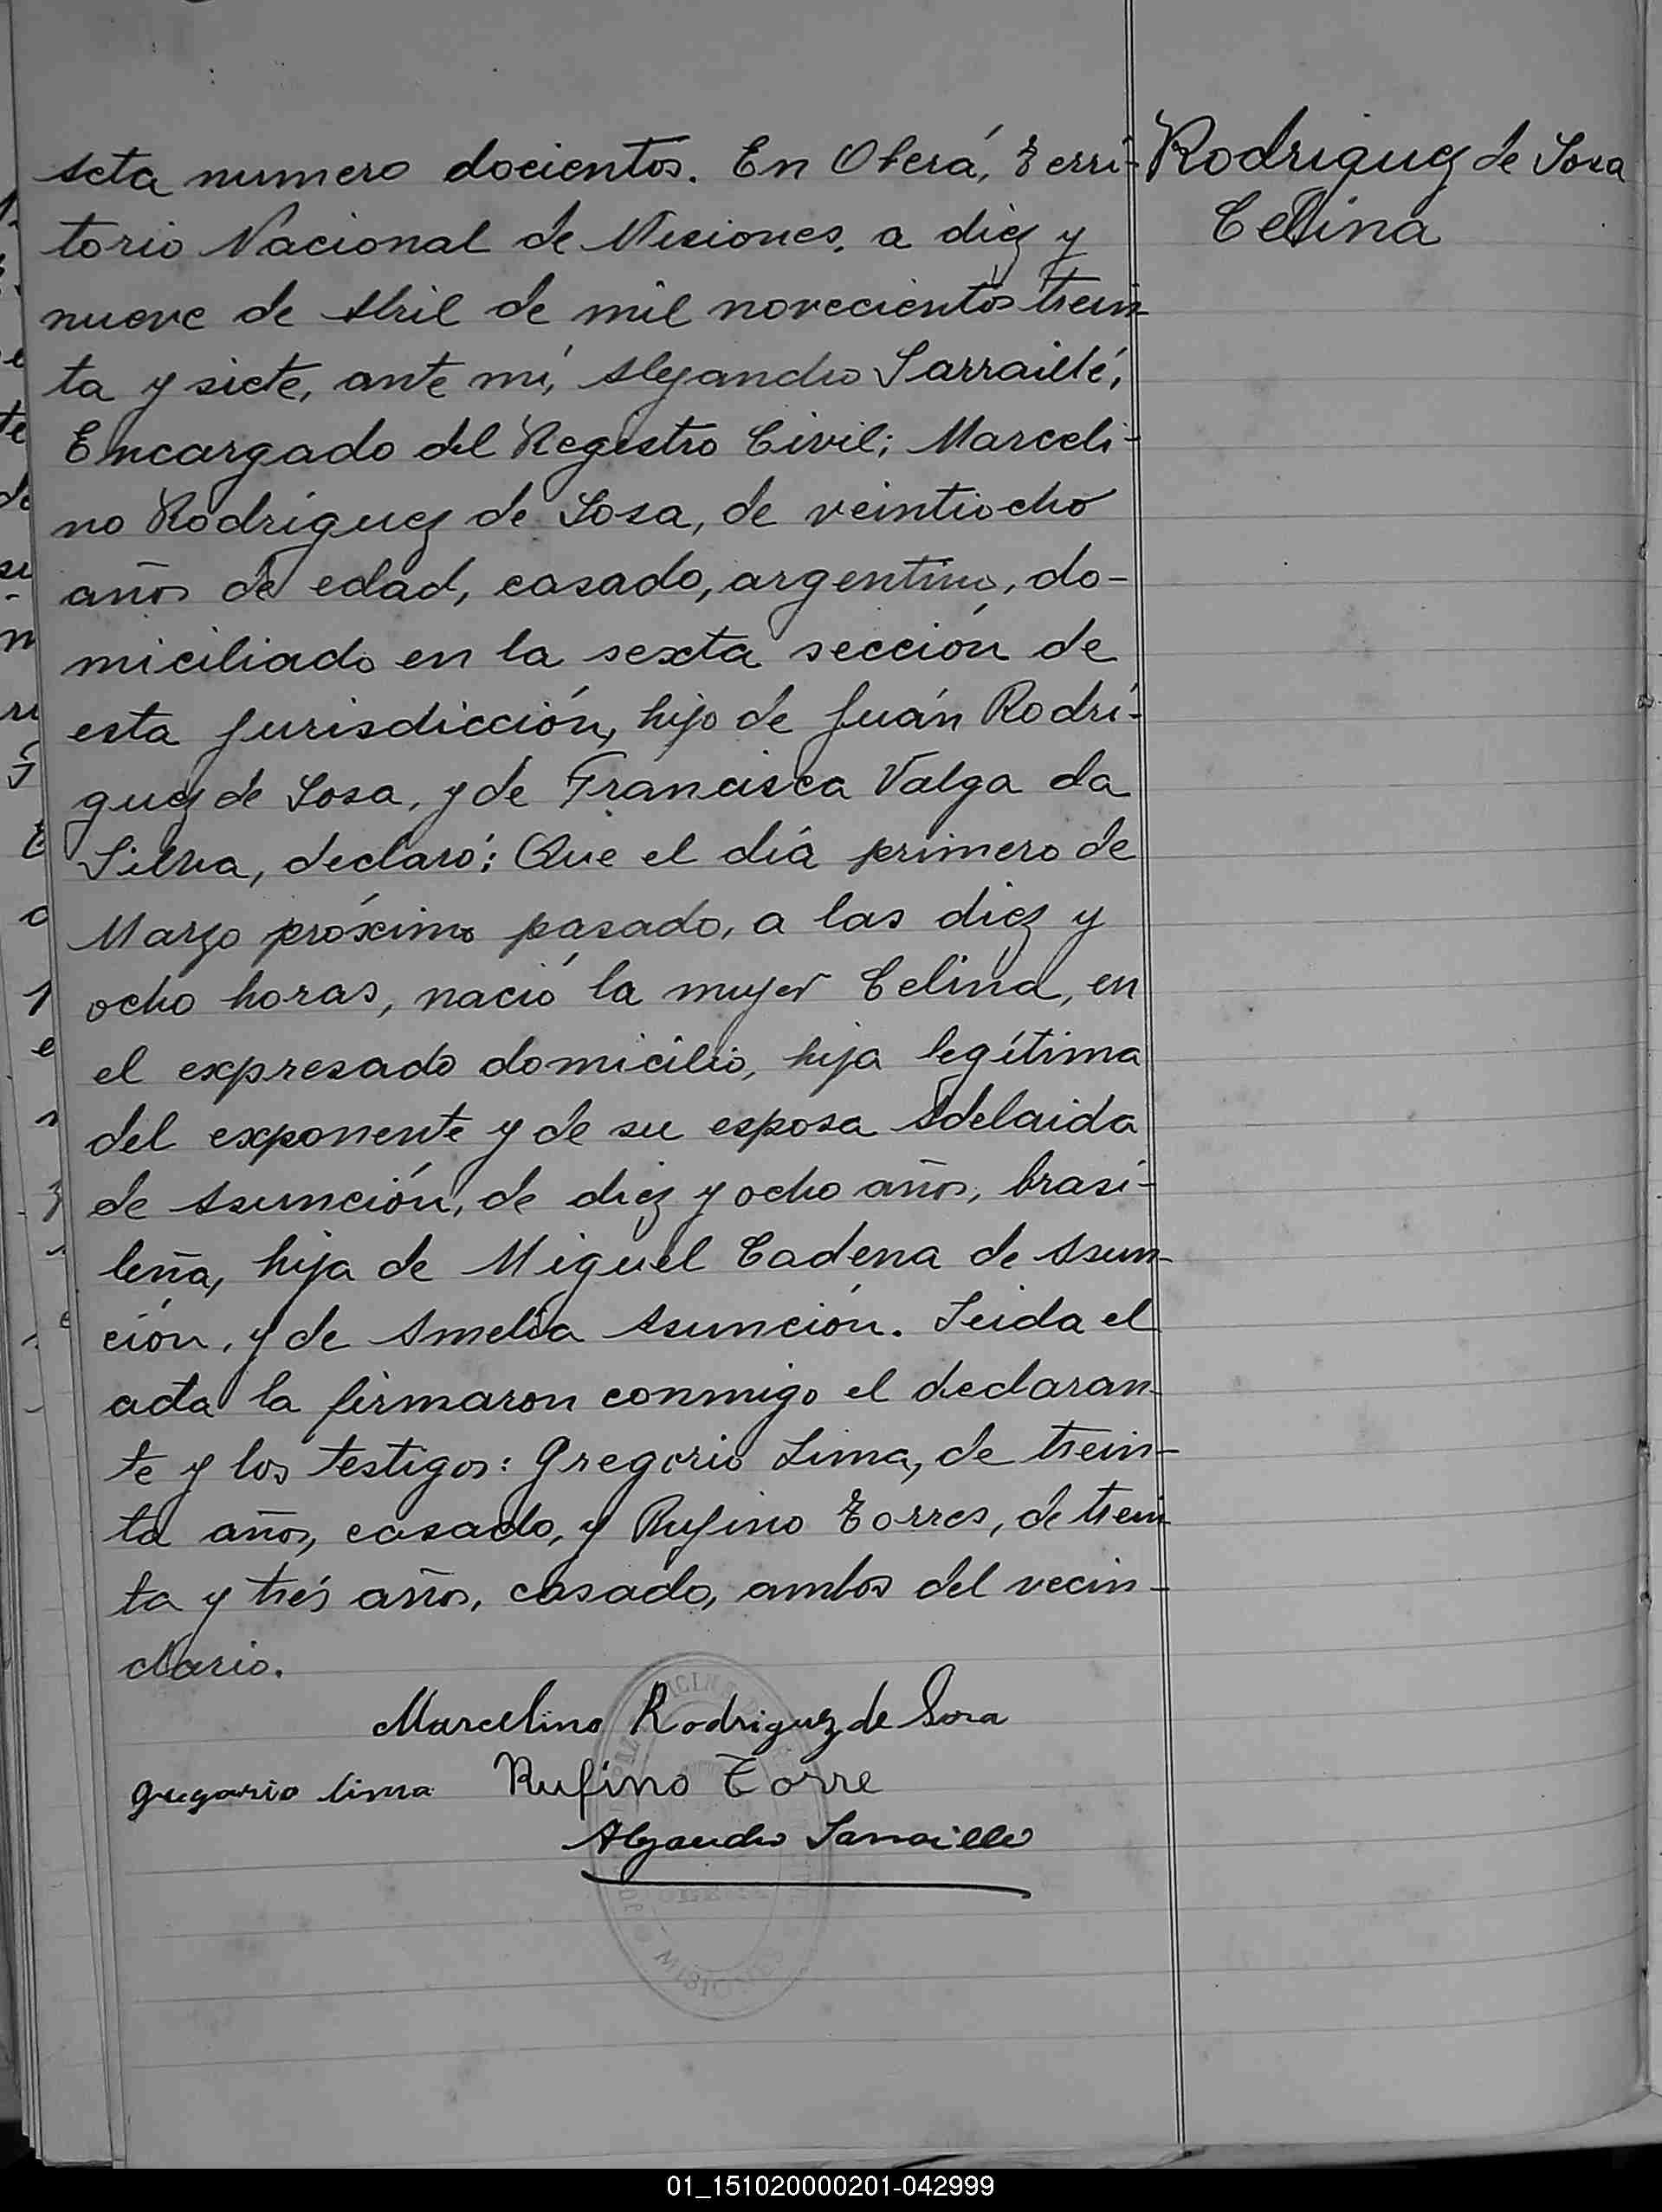 Acta numero docientos. En Oberá, Terri-
torio Nacional de Misiones, a diez y
nueve de Abril de mil novecientos trein
ta y siete, ante mí, Alejandro Sarraillé,
Encargado del Registro Civil; Marceli-
no Rodríguez de Sosa, de veintiocho
años de edad, casado, argentino, do-
miciliado en la sexta sección de
esta jurisdicción, hijo de Juán Rodrí-
guez de Sosa, y de Francisca Valga da
Silva, declaró: Que el día primero de
Marzo próximo pasado, a las diez y
ocho horas, nació la mujer Celina, en
el expresado domicilio, hija legítima
del exponente y de su esposa Adelaida
de Asunción, de diez y ocho años, brasi-
leña, hija de Miguel Cadena de Asun-
ción, y de Amelia Asunción. Leida el
acta la firmaron conmigo el declaran-
te y los testigos: Gregorio Lima, de trein-
ta años, casado, y Rufino Torres, de trein
ta y trés años, casado, ambos del vecin-
dario.
Marcelino Rodriguez de Sosa
gregorio lima Rufino Torre
Alejandro Sarraillé
Rodriguez de Sosa
Celina
MISIONES
01_151020000201-042999